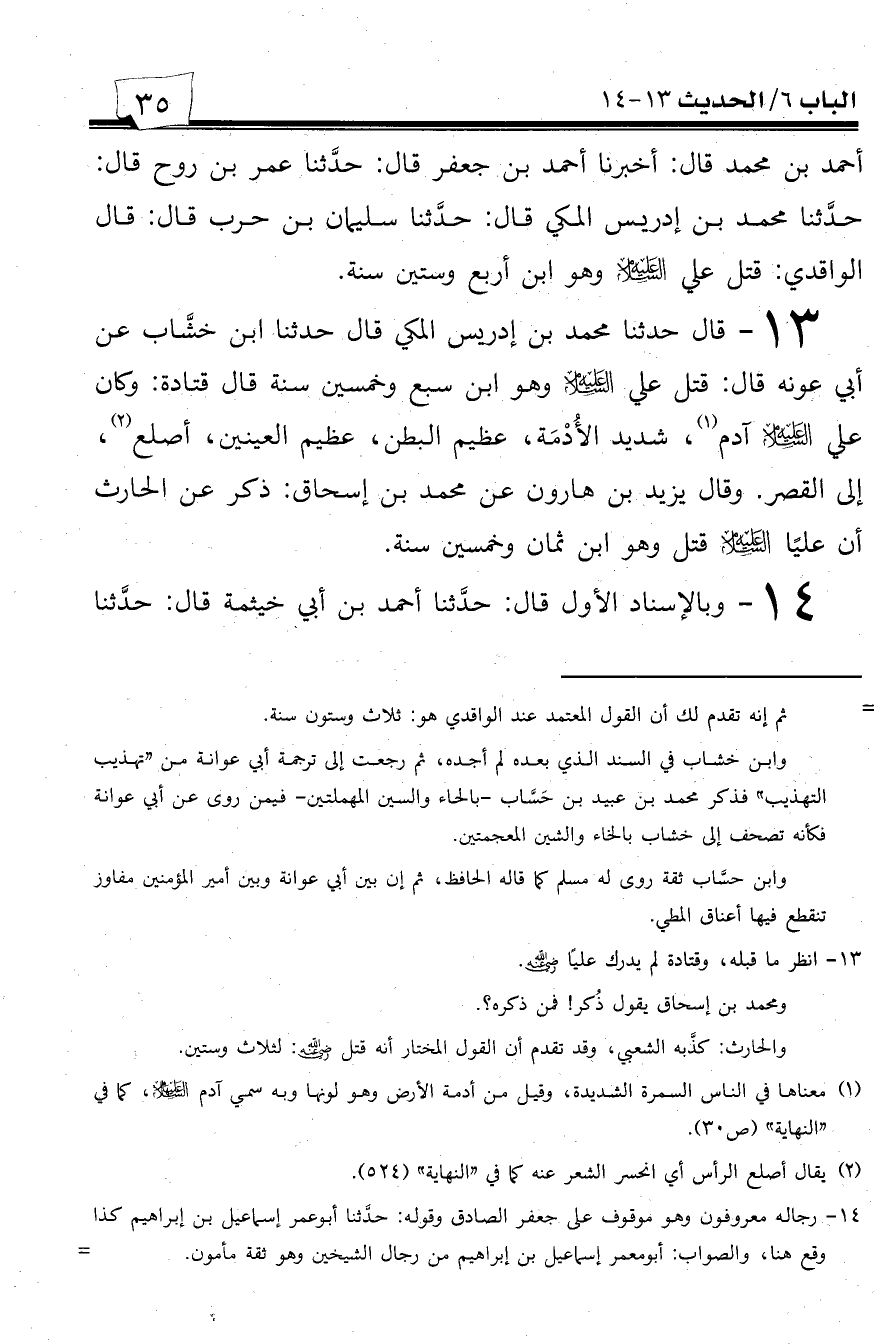 الباب ٦/ الحديث ١٣-١٤
٣٥
أحمد بن محمد قال: أخبرنا أحمد بن جعفر قال: حدَّثنا عمر بن روح قال:
حدَّثنا محمد بن إدريس المكي قال: حدَّثنا سليمان بن حرب قال: قال
الواقدي: قتل علي عليه السلام وهو ابن أربع وستين سنة.
١٣- قال حدثنا محمد بن إدريس المكي قال حدثنا ابن خشَّاب عن
أبي عونه قال: قتل علي عليه السلام وهو ابن سبع وخمسين سنة قال قتادة: وكان
علي عليه السلام آدم(١)، شديد الأُدْمَة، عظيم البطن، عظيم العينين، أصلع(٢)،
إلى القصر. وقال يزيد بن هارون عن محمد بن إسحاق: ذكر عن الحارث
أن عليًا عليه السلام قتل وهو ابن ثمان وخمسين سنة.
١٤- وبالإسناد الأول قال: حدَّثنا أحمد بن أبي خيثمة قال: حدَّثنا
= ثم إنه تقدم لك أن القول المعتمد عند الواقدي هو: ثلاث وستون سنة.
وابن خشاب في السند الذي بعده لم أجده، ثم رجعت إلى ترجمة أبي عوانة من "تهذيب
التهذيب" فذكر محمد بن عبيد بن حَسَّاب -بالحاء والسين المهملتين- فيمن روى عن أبي عوانة
فكأنه تصحف إلى خشاب بالخاء والشين المعجمتين.
وابن حسَّاب ثقة روى له مسلم كما قاله الحافظ، ثم إن بين أبي عوانة وبين أمير المؤمنين مفاوز
تنقطع فيها أعناق المطي.
١٣- انظر ما قبله، وقتادة لم يدرك عليًا رضي الله عنه.
ومحمد بن إسحاق يقول ذُكر! فمن ذكره؟.
والحارث: كذَّبه الشعبي، وقد تقدم أن القول المختار أنه قتل رضي الله عنه: لثلاث وستين.
(١) معناها في الناس السمرة الشديدة، وقيل من أدمة الأرض وهو لونها وبه سمي آدم عليه السلام، كما في
"النهاية" (ص٣٠).
(٢) يقال أصلع الرأس أي انحسر الشعر عنه كما في "النهاية" (٥٢٤).
١٤- رجاله معروفون وهو موقوف على جعفر الصادق وقوله: حدَّثنا أبوعمر إسماعيل بن إبراهيم كذا
وقع هنا، والصواب: أبومعمر إسماعيل بن إبراهيم من رجال الشيخين وهو ثقة مأمون. =